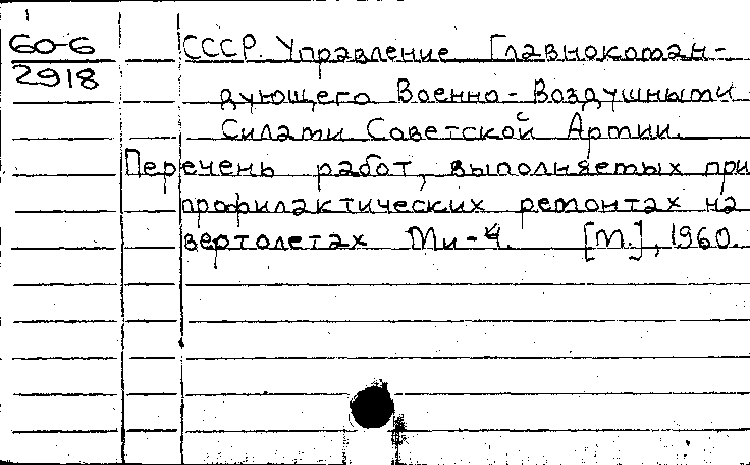 60-6
2918
СССР. Управление Главнокоман-
дующего Военно-Воздушными
Силами Советской Армии.
Перечень работ, выполняемых при
профилактических ремонтах на
вертолетах Ми-4. [М.], 1960.